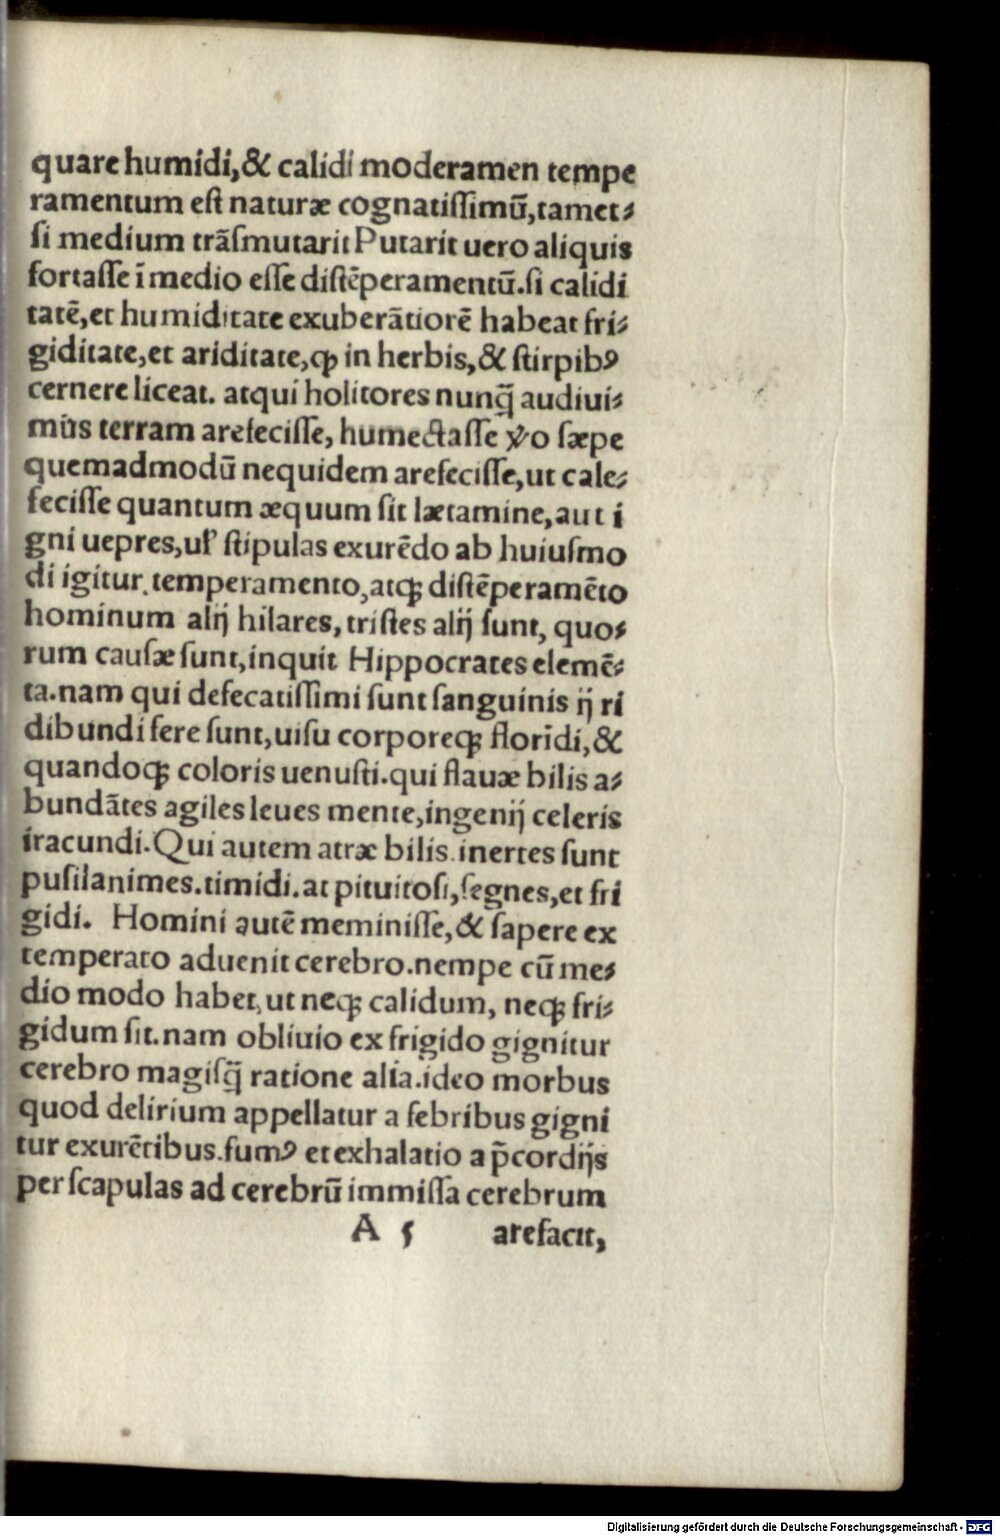 quare humidi,& calidi moderamen tempe
ramentum eſt naturæ cognatiſſimū,tamet⸗
ſi medium trãſmutarit Putarit uero aliquis
fortaſſe ī medio eſſe diſtēperamentū.ſi calidi
tatē,et humiditate exuberãtiorē habeat fri⸗
giditate,et ariditate,ꝙ in herbis,& ſtirpibꝰ
cernere liceat. atqui holitores nunq̃ audiui⸗
mus terram arefeciſſe, humectaſſe ꝟo ſæpe
quemadmodū nequidem arefeciſſe,ut cale⸗
feciſſe quantum æquum ſit lætamine,aut i
gni uepres,uꝉ ſtipulas exurēdo ab huiuſmo
di igitur temperamento,atqꝫ diſtēperamēto
hominum alij hilares, triſtes alij ſunt, quo⸗
rum cauſæ ſunt,inquit Hippocrates elemē⸗
ta.nam qui defecatiſſimi ſunt ſanguinis ij ri
dibundi fere ſunt,uiſu corporeqꝫ floridi,&
quandoqꝫ coloris uenuſti.qui flauæ bilis a⸗
bundãtes agiles leues mente,ingenij celeris
iracundi.Qui autem atræ bilis.inertes ſunt
puſilanimes.timidi.at pituitoſi,ſegnes,et fri
gidi. Homini autē meminiſſe,& ſapere ex
temperato aduenit cerebro.nempe cū me⸗
dio modo habet,ut neqꝫ calidum, neqꝫ fri⸗
gidum ſit.nam obliuio ex frigido gignitur
cerebro magiſq̃ ratione alia.ideo morbus
quod delirium appellatur a febribus gigni
tur exurētibus.fumꝰ et exhalatio a p̄cordijs
per ſcapulas ad cerebrū immiſſa cerebrum
A 5 arefacit,
Digitalisierung gefördert durch die Deutsche Forschungsgemeinschaft - DFG